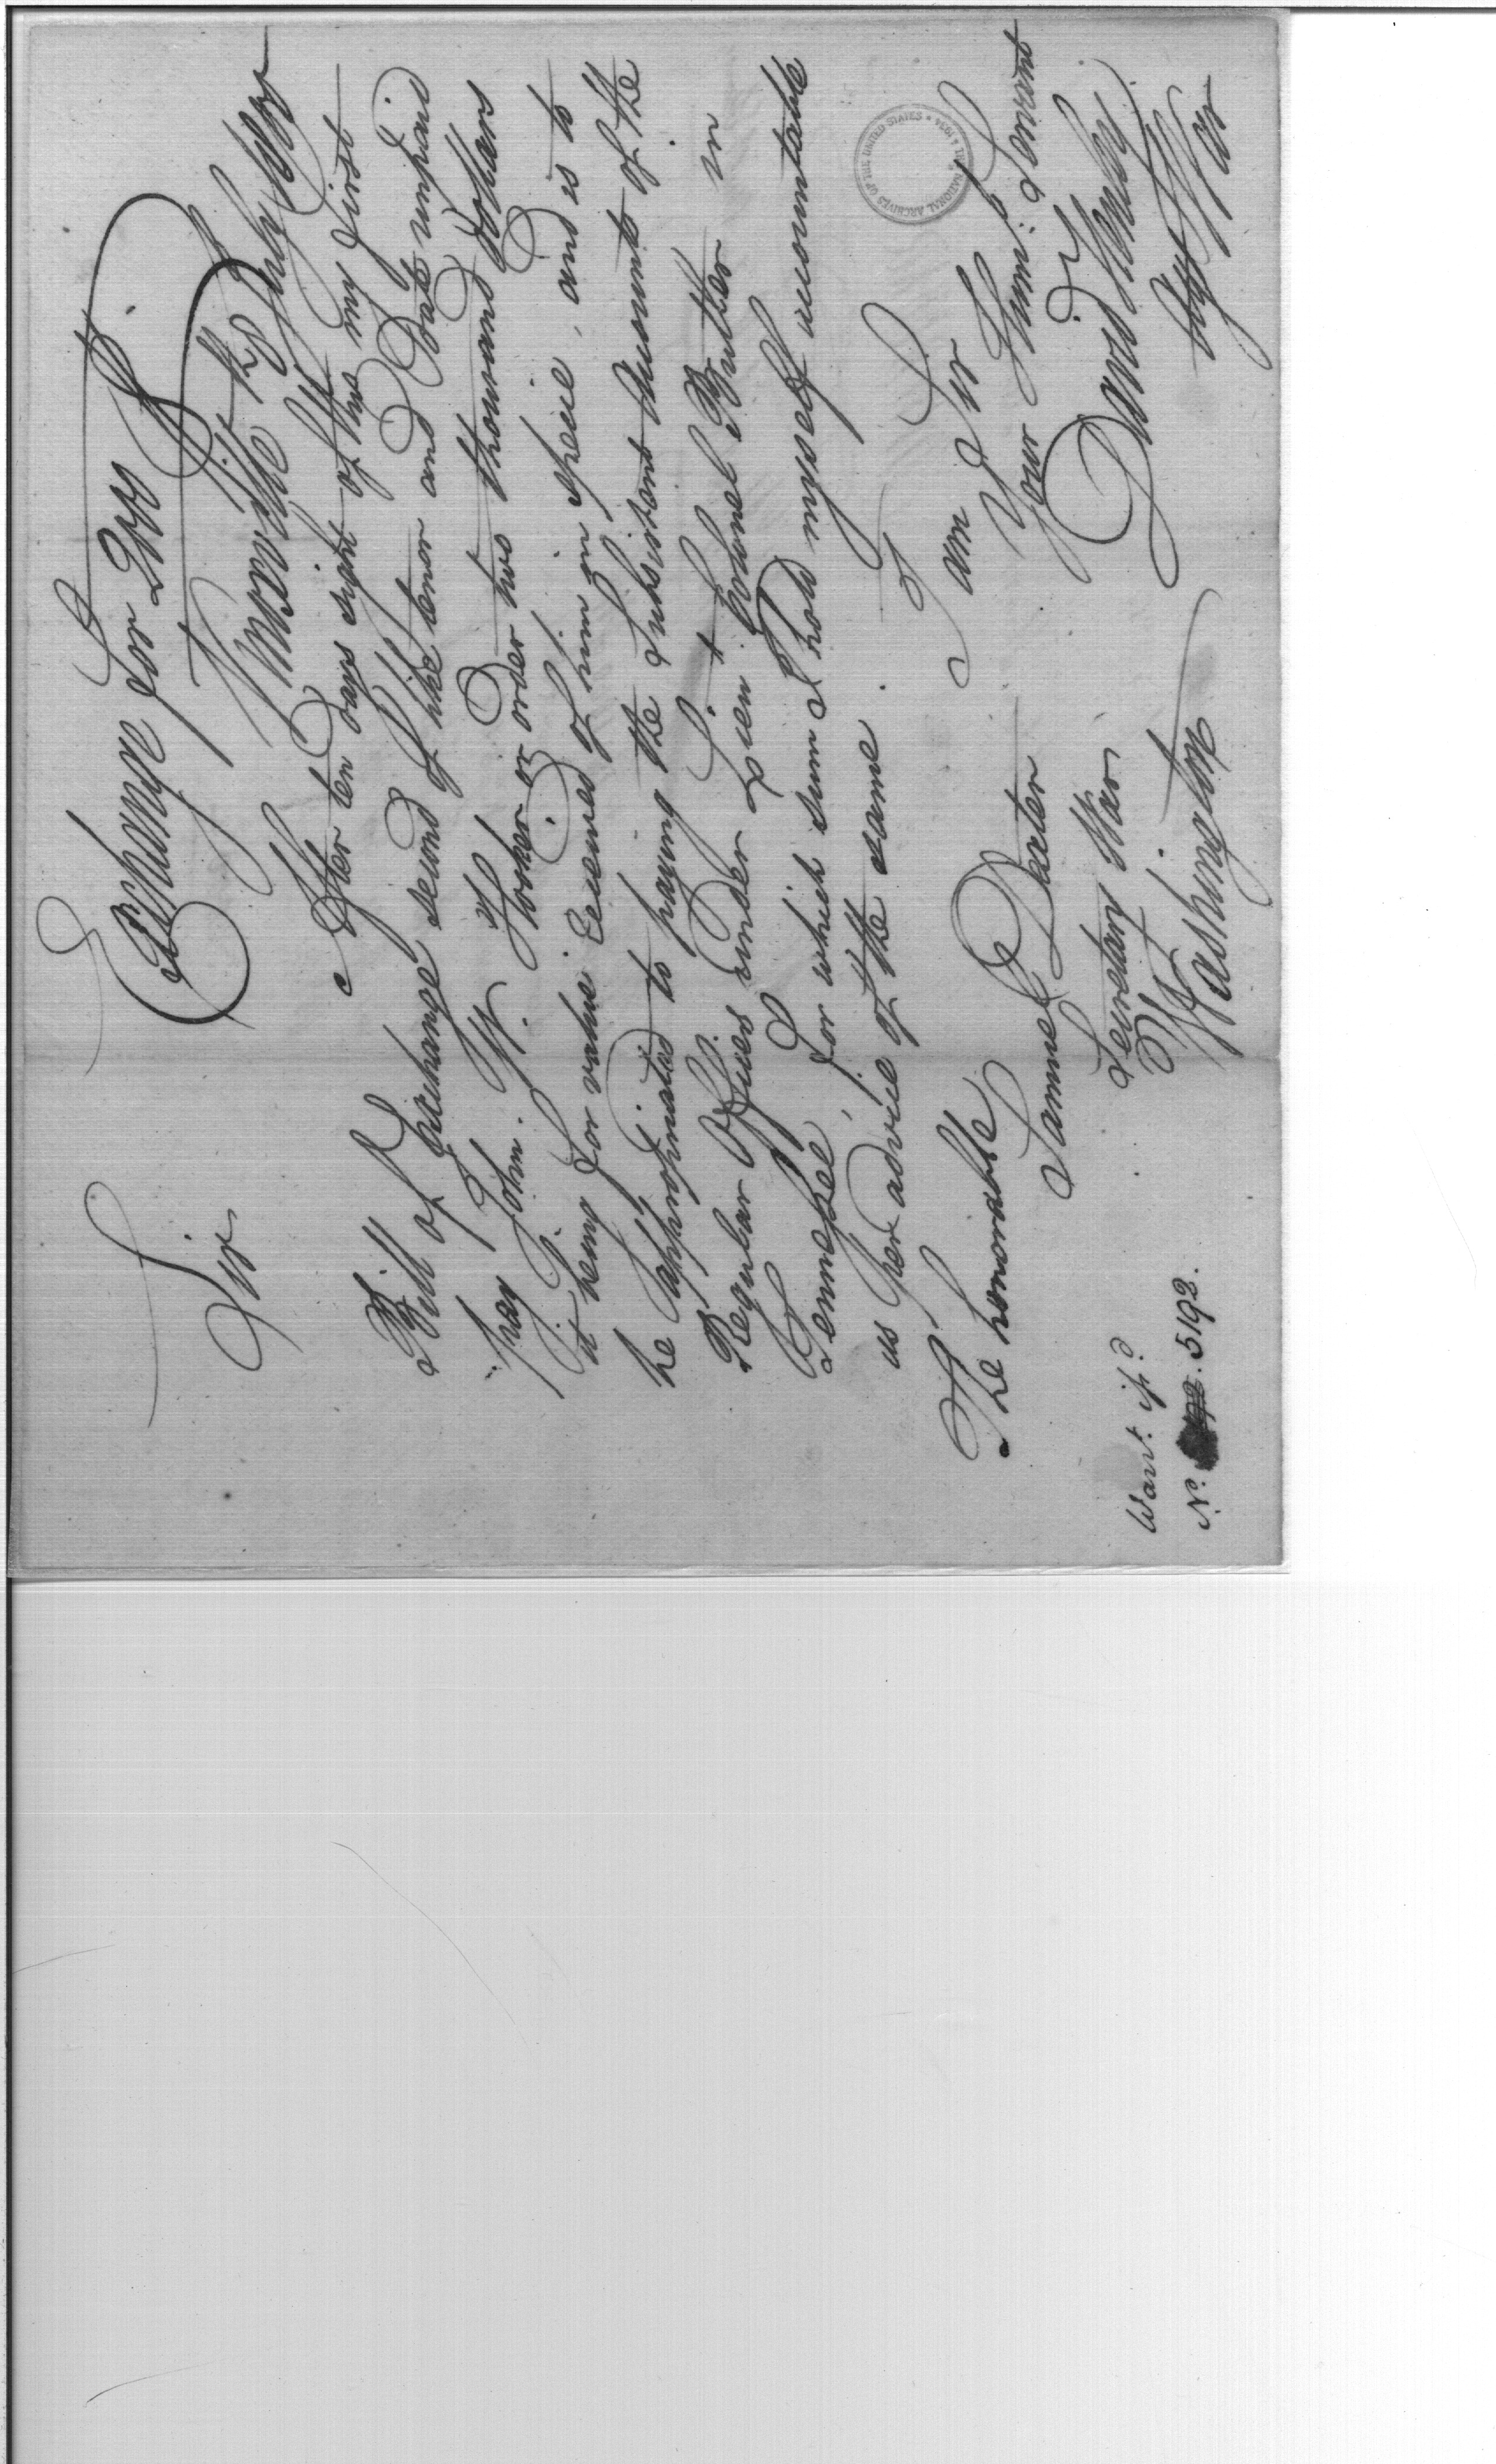 Exchange for 2000 $
Knoxville July 1800
Sir
After ten days sight of this my first
Bill of Exchange second of like tenor and Date unpaid
pay John. W. Hooker or order two thousand Dollars
it being for value received of him in specie, and is to
be appropriated to paying the Subsistant Accounts of the
Regular Officers under Lieut. Colonel Butler in
Tennessee, for which sum I hold myself accountable
as per advice of the same.
I am Sir
Your Hum: Servant
David Henley
agt War
The honorable
Samuel Dexter
Secretary War
Washington
Warrt. iss.d
No. 5192.
THE NATIONAL ARCHIVES OF THE UNITED STATES * 1934 *